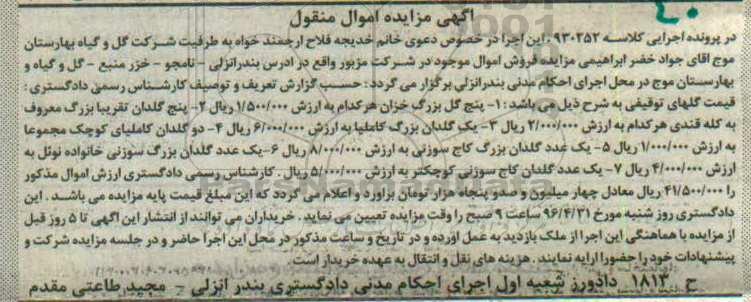 آگهی مزایده اموال منقول
در پرونده اجرایی کلاسه ۹۳۰۲۵۲ این اجرا در خصوص دعوی خانم خدیجه فلاح ارجمند خواه به طرفیت شرکت گل و گیاه بهارستان
موج اقای جواد خضر ابراهیمی مزایده فروش اموال موجود در شرکت مزبور واقع در ادرس بندرانزلی - نامجو - خزر منبع - گل و گیاه و
بهارستان موج در محل اجرای احکام مدنی بندرانزلی برگزار می گردد : حسب گزارش تعریف و توصیف کارشناس رسمی دادگستری :
قیمت گلهای توقیفی به شرح ذیل می باشد : ۱- پنج گل بزرگ خزان هرکدام به ارزش ۱/۵۰۰/۰۰۰ ریال ۲- پنج گلدان تقریبا بزرگ معروف
به کله قندی هرکدام به ارزش ۲/۰۰۰/۰۰۰ ریال ۳- یک گلدان بزرگ کاملیا به ارزش ۶/۰۰۰/۰۰۰ ریال ۴- دو گلدان کاملیای کوچک مجموعا
به ارزش ۱/۰۰۰/۰۰۰ ریال ۵- یک عدد گلدان بزرگ کاج سوزنی به ارزش ۸/۰۰۰/۰۰۰ ریال ۶- یک عدد گلدان بزرگ سوزنی خانواده نوئل به
ارزش ۴/۰۰۰/۰۰۰ ریال ۷- یک عدد گلدان کاج سوزنی کوچکتر به ارزش ۵/۰۰۰/۰۰۰ ریال . کارشناس رسمی دادگستری ارزش اموال مذکور
را ۴۱/۵۰۰/۰۰۰ ریال معادل چهار میلیون و صدو پنجاه هزار تومان براورد و اعلام می گردد که این مبلغ قیمت پایه مزایده می باشد . این
دادگستری روز شنبه مورخ ۹۶/۴/۳۱ ساعت ۹ صبح را وقت مزایده تعیین می نماید . خریداران می توانند از انتشار این اگهی تا ۵ روز قبل
از مزایده با هماهنگی این اجرا از ملک بازدید به عمل اورده و در تاریخ و ساعت مذکور در محل این اجرا حاضر و در جلسه مزایده شرکت و
پیشنهادات خود را حضورا ارایه نمایند . هزینه های نقل و انتقال به عهده خریدار است.
ح ۱۸۱۳ دادورز شعبه اول اجرای احکام مدنی دادگستری بندر انزلی - مجید طاعتی مقدم